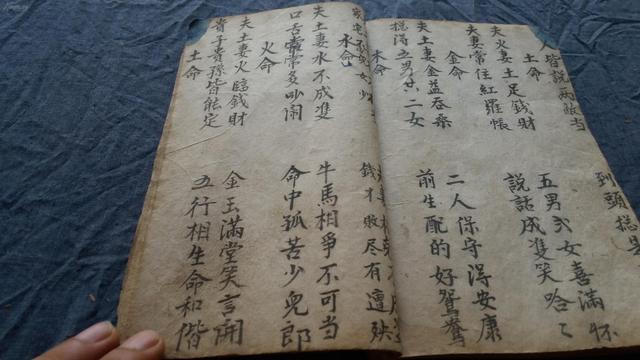 人皆說两 到頭
土命
夫火妻土足錢財 五男弍女喜滿怀
夫妻常住紅羅帳 說話成雙笑哈々
金命
夫土妻金益吞桑 二人保守得安康
搃得五男共二女 前生配的好鴛鴦
木命
錢才敗尽有遭殃
水命
夫土妻水不成雙 牛馬相爭不可当
口舌常常多吵闹 命中孤苦少兒郎
火命
夫土妻火臨錢財 金玉滿堂笑言開
貴子貴孫皆能定 五行相生命和偕
土命